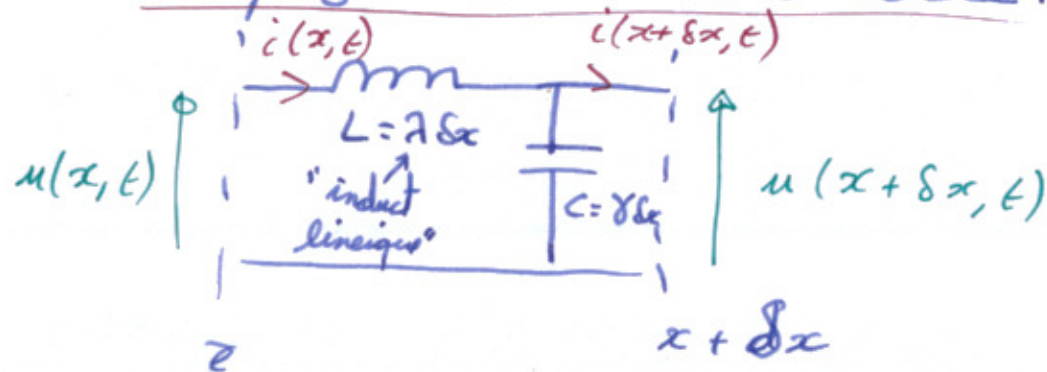 i(x,t)
i(x+δx,t)
L = λδx
u(x,t)
"induct
lineique"
C = γδx
u(x+δx,t)
x + δx